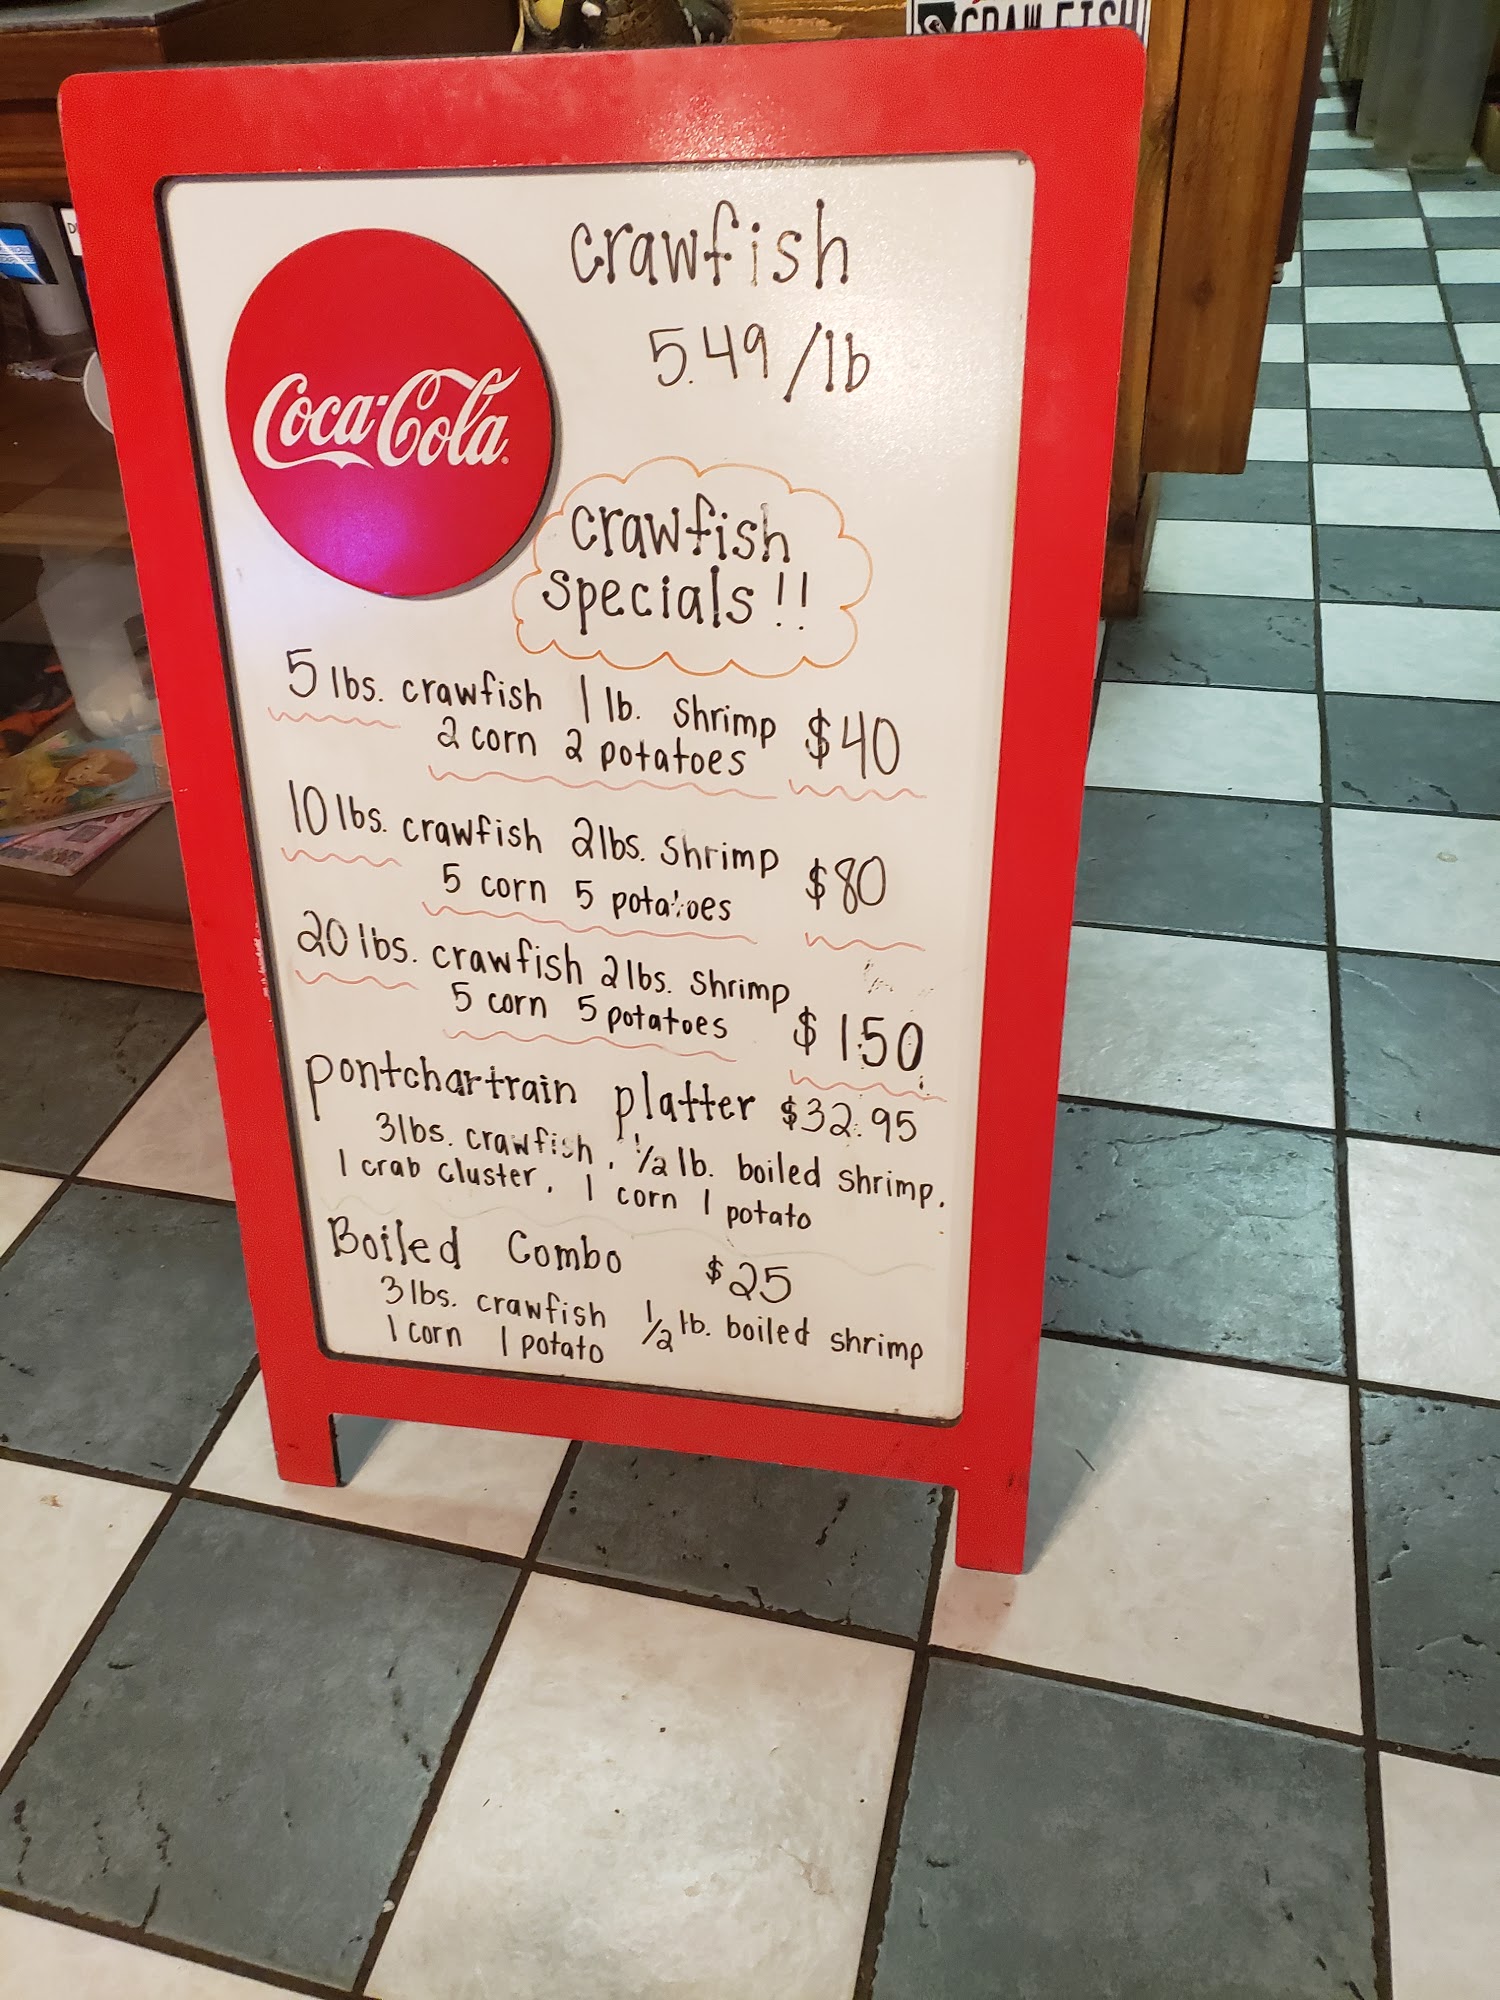 CRAWFISH
Coca-Cola
crawfish
5.49/lb
crawfish
specials!!
5 lbs. crawfish 1 lb. shrimp $40
2 corn 2 potatoes
10 lbs. crawfish 2 lbs. shrimp $80
5 corn 5 potatoes
20 lbs. crawfish 2 lbs. shrimp
5 corn 5 potatoes $150
pontchartrain platter $32.95
3 lbs. crawfish, 1/2 lb. boiled shrimp.
1 crab cluster, 1 corn 1 potato
Boiled Combo $25
3 lbs. crawfish 1/2 lb. boiled shrimp
1 corn 1 potato